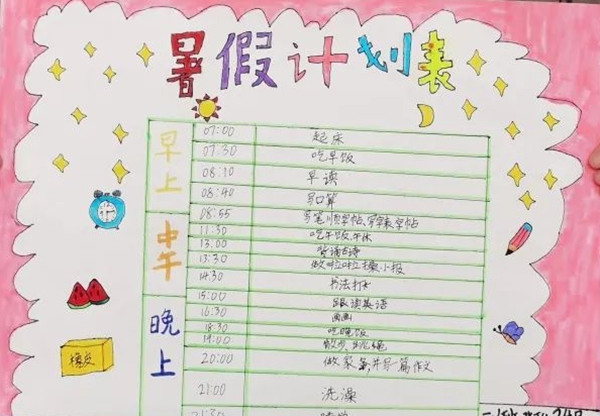 暑假计划表
早上
07:00 起床
07:30 吃早饭
08:10 早读
08:40 写口算
08:55 写笔顺字帖,写字表字帖
中午
11:30 吃午饭,午休
13:00 背诵古诗
13:30 做啦啦操,小报
14:30 书法打卡
晚上
15:00 跟读英语
16:30 画画
18:30 吃晚饭
19:00 散步,跳绳
20:00 做家务,并写一篇作文
21:00 洗澡
21:30
橡皮